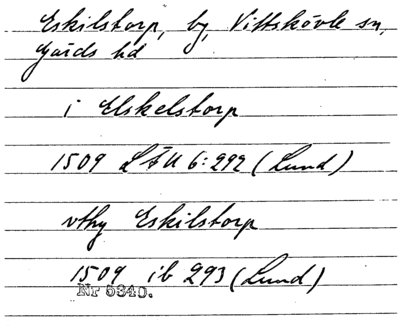 Eskilstorp, by, Vittskövle sn,
Gärds hd
i Elskelstorp
1509 LÄU 6:292 (Lund)
vthy Eskilstorp
1509 ib 293 (Lund)
Nr 5340.